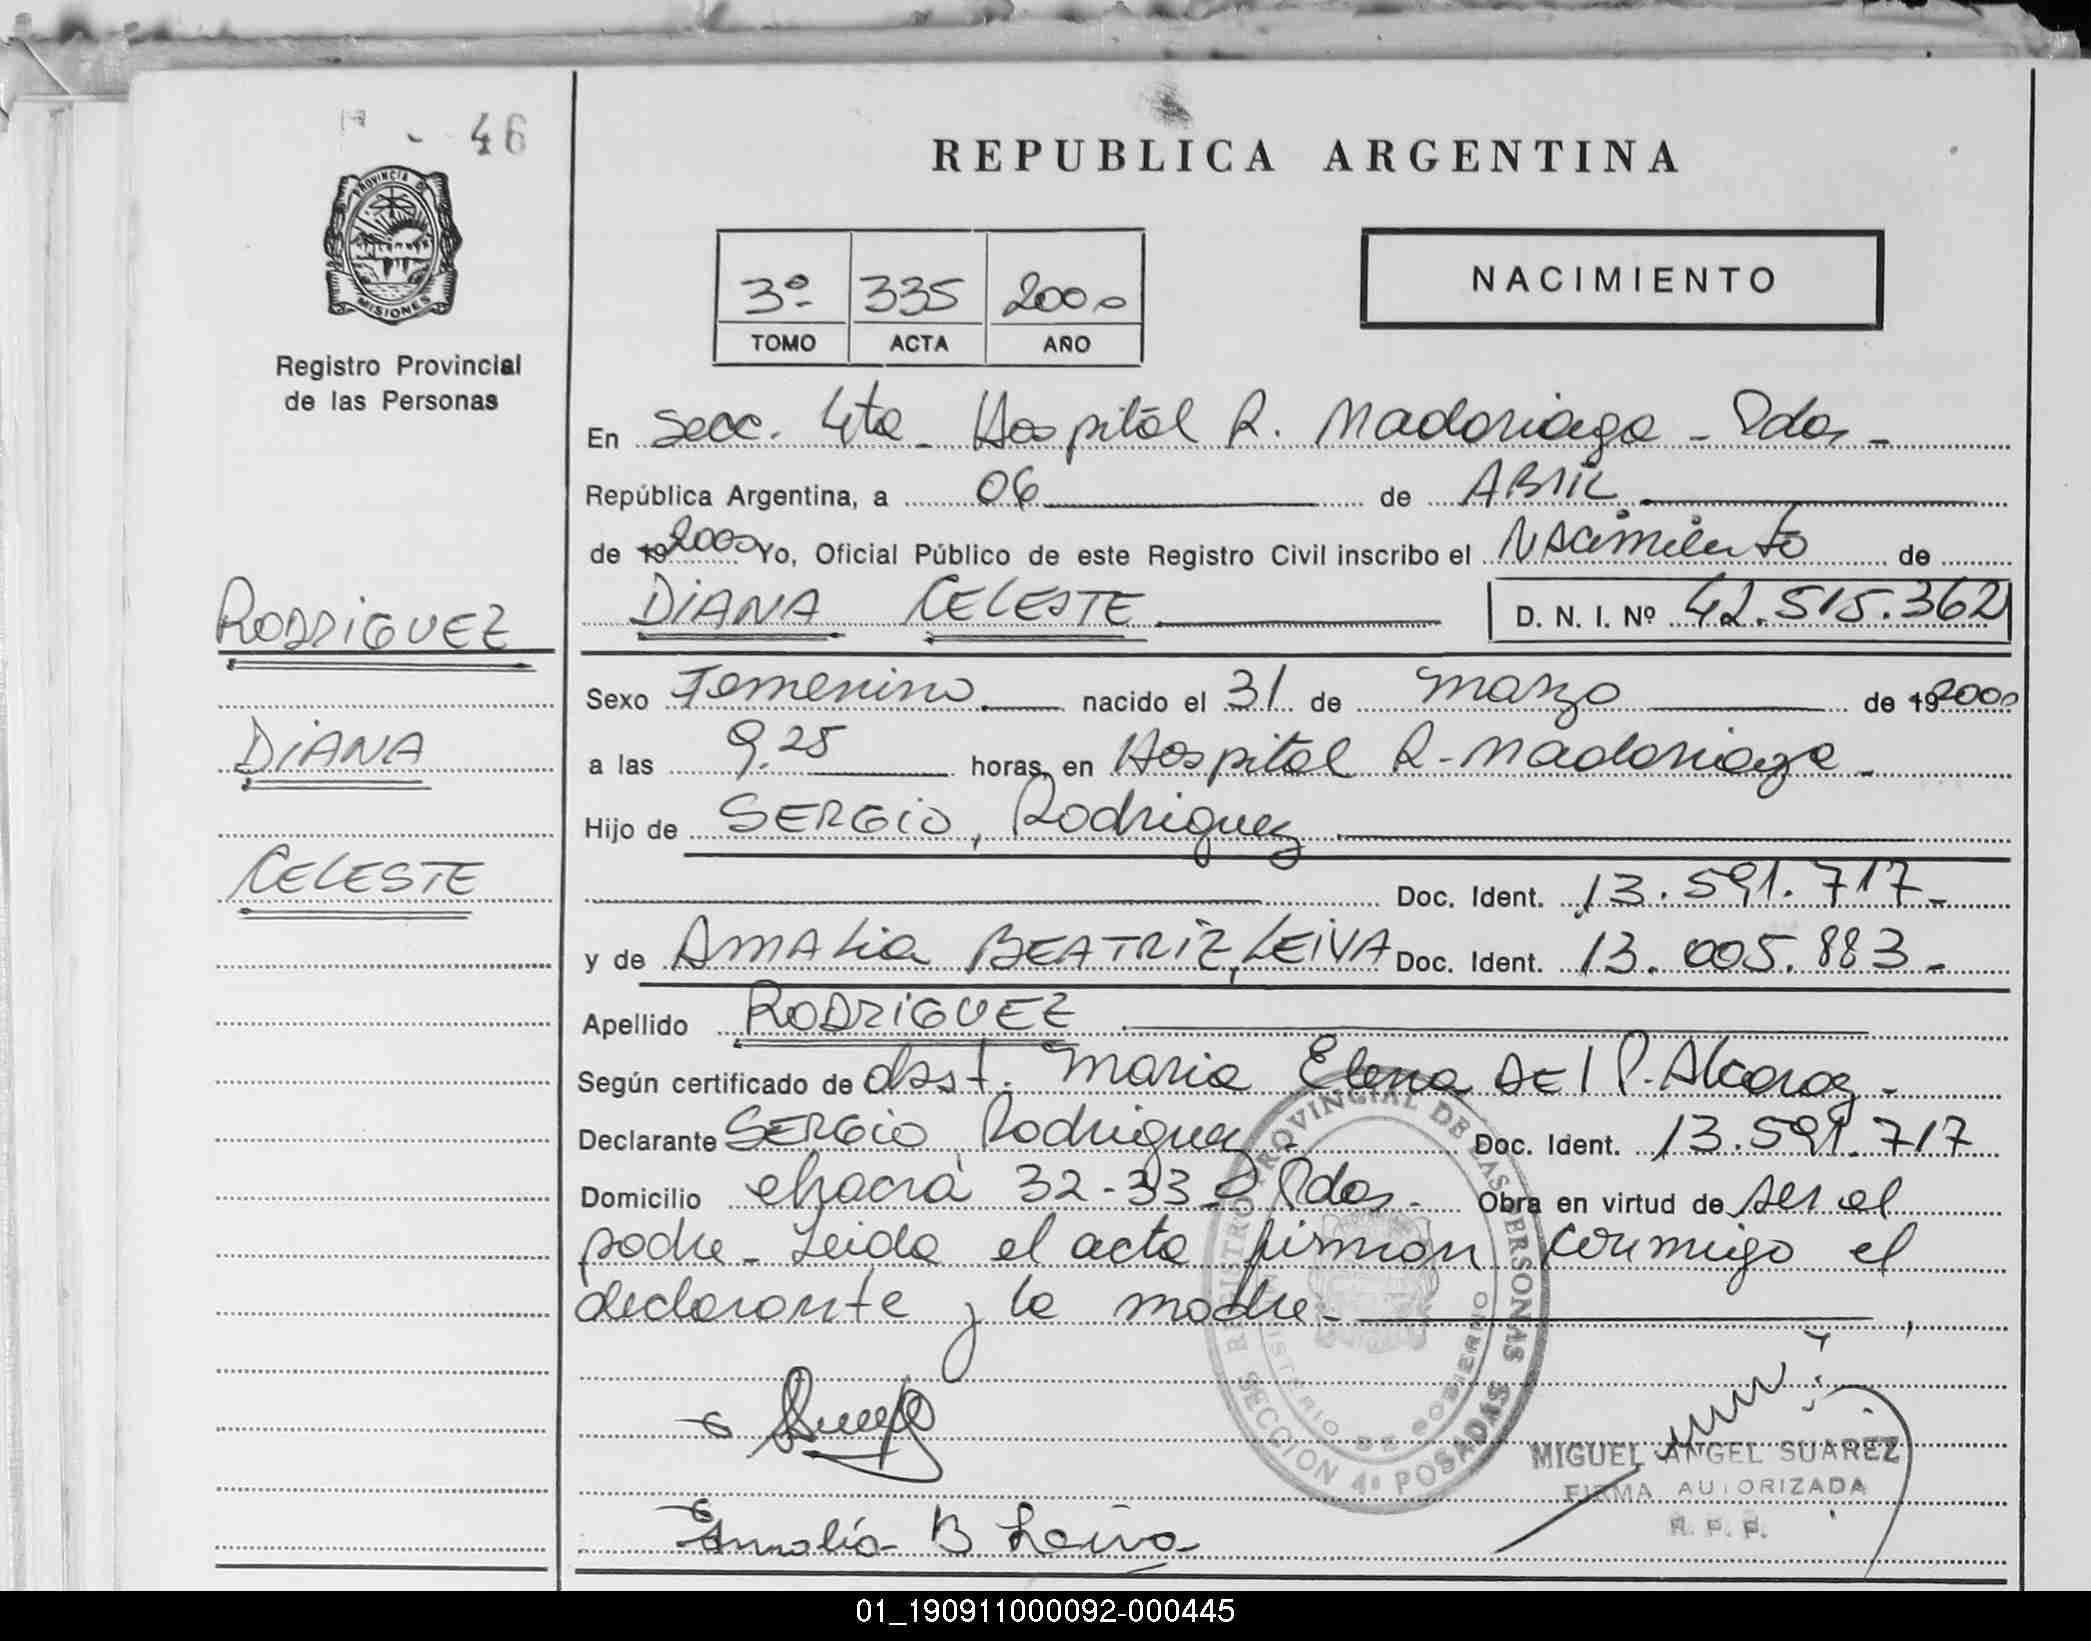 46
REPUBLICA ARGENTINA
PROVINCIA DE
MISIONES
Registro Provincial
de las Personas
3º 335 2000
TOMO ACTA AÑO
NACIMIENTO
En Secc. 4ta - Hospital R. Madariaga - Pdas -
República Argentina, a 06 de ABRIL
de 19 2000 Yo, Oficial Público de este Registro Civil inscribo el Nacimiento de
DIANA CELESTE D. N. I. Nº 42.515.362
RODRIGUEZ
DIANA
CELESTE
Sexo Femenino nacido el 31 de marzo de 19 2000
a las 9.25 horas, en Hospital R. Madariaga -
Hijo de SERGIO, Rodriguez
Doc. Ident. 13.591.717 -
y de AMALia BEATRIZ, LEIVA Doc. Ident. 13.005.883 -
Apellido RODRIGUEZ
Según certificado de obst. Maria Elena DEL P. Alcaraz -
Declarante SERGIO Rodriguez - Doc. Ident. 13.591.717
Domicilio chacra 32-33 - Pdas - Obra en virtud de ser el
padre - Leida el acta firman conmigo el
declarante y la madre -
REGISTRO PROVINCIAL DE LAS PERSONAS
MINISTERIO DE GOBIERNO
SECCION 4ª POSADAS
MIGUEL ANGEL SUAREZ
FIRMA AUTORIZADA
R. P. P.
Amalia B Leiva
01_190911000092-000445